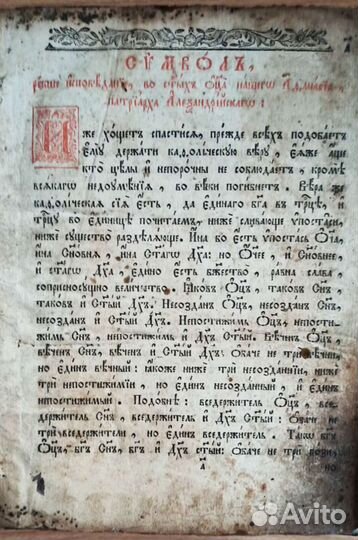 СѴМВО́ЛЪ,
во ст҃ыхъ Ѻ҆ц҃а̀ на́шегѡ А҆ѳана́сїа,
патрїа́рха А҆леѯандрі́йскагѡ:
И҆́же хо́щетъ спасти́сѧ, пре́жде всѣ́хъ подоба́етъ
є҆мꙋ̀ держа́ти каѳоли́ческꙋю вѣ́рꙋ, є҆ѧ́же а҆́ще
кто̀ цѣ́лы и҆ непоро́чны не соблюда́етъ, кромѣ̀
всѧ́кагѡ недоꙋмѣ́нїѧ, во вѣ́ки поги́бнетъ. Вѣ́ра же
каѳоли́ческаѧ сїѧ̀ є҆́сть, да є҆ди́наго бг҃а въ трⷪ҇цѣ, и҆
трⷪ҇цꙋ во є҆ди́ницѣ почита́емъ, нижѐ слива́юще ѵ҆поста̑си,
нижѐ сꙋщество̀ раздѣлѧ́юще. И҆́на бо є҆́сть ѵ҆поста́сь Ѻ҆́ч҃аѧ,
и҆́на Сн҃о́внѧѧ, и҆́на ст҃а́гѡ Дх҃а: но Ѻ҆́ч҃ее, и҆ Сн҃о́внее,
и҆ ст҃а́гѡ Дх҃а, є҆ди́но є҆́сть бж҃ество̀, ра́вна сла́ва,
соприсносꙋ́щно вели́чество. Ꙗ҆ко́въ Ѻ҆ц҃ъ, тако́въ Сн҃ъ,
тако́въ и҆ Ст҃ы́й Дх҃ъ. Несозда́нъ Ѻ҆ц҃ъ, несозда́нъ Сн҃ъ,
несозда́нъ и҆ Ст҃ы́й Дх҃ъ. Непостижи́мь Ѻ҆ц҃ъ, непости-
жи́мь Сн҃ъ, непостижи́мь и҆ Дх҃ъ Ст҃ы́й. Вѣ́ченъ Ѻ҆ц҃ъ,
вѣ́ченъ Сн҃ъ, вѣ́ченъ и҆ Ст҃ы́й Дх҃ъ: Ѻ҆ба́че не трѝ вѣ̑чнїи,
но є҆ди́нъ вѣ́чный: ꙗ҆́коже нижѐ трѝ несозда́ннїи, нижѐ
трѝ непостижи̑мїи, но є҆ди́нъ несозда́нный, и҆ є҆ди́нъ
непостижи́мый. Подо́бнѣ: вседержи́тель Ѻ҆ц҃ъ, все-
держи́тель Сн҃ъ, вседержи́тель и҆ Дх҃ъ Ст҃ы́й: Ѻ҆ба́че не
трѝ вседержи́тели, но є҆ди́нъ вседержи́тель. Та́кѡ бг҃ъ
Ѻ҆ц҃ъ, бг҃ъ Сн҃ъ, бг҃ъ и҆ Дх҃ъ ст҃ы́й: ѻ҆ба́че не трѝ бо́зи,
а҃
но
Avito